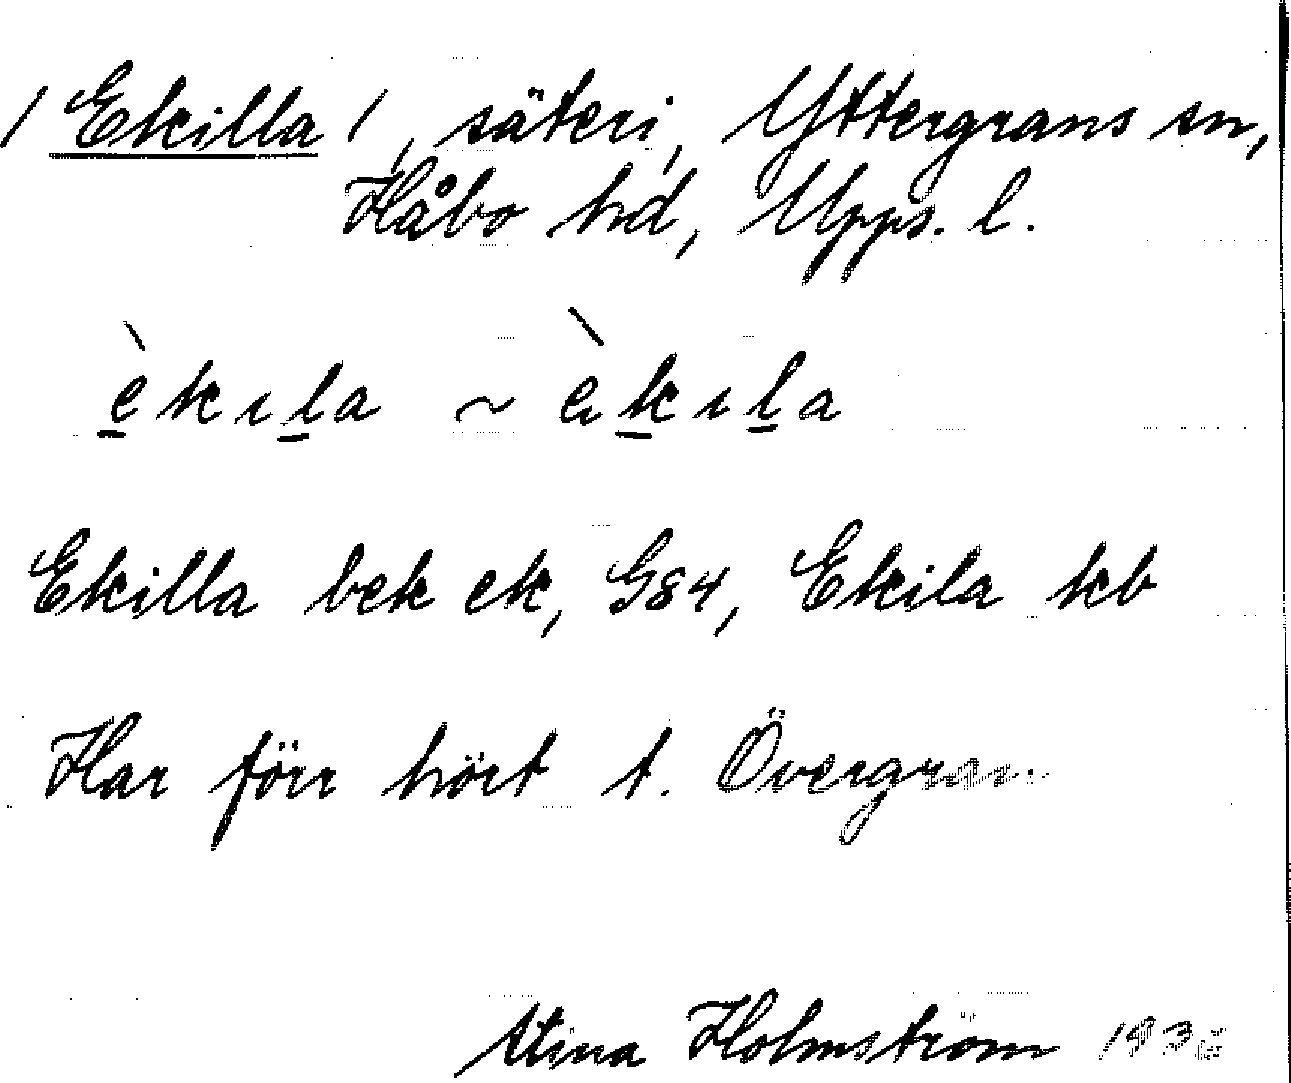 / Ekilla /, säteri, Yttergrans sn,
Håbo hd, Upps. l.
èkıla ~ èkıla
Ekilla bek ek, G84, Ekila kb
Har förr hört t. Övergran
Stina Holmström